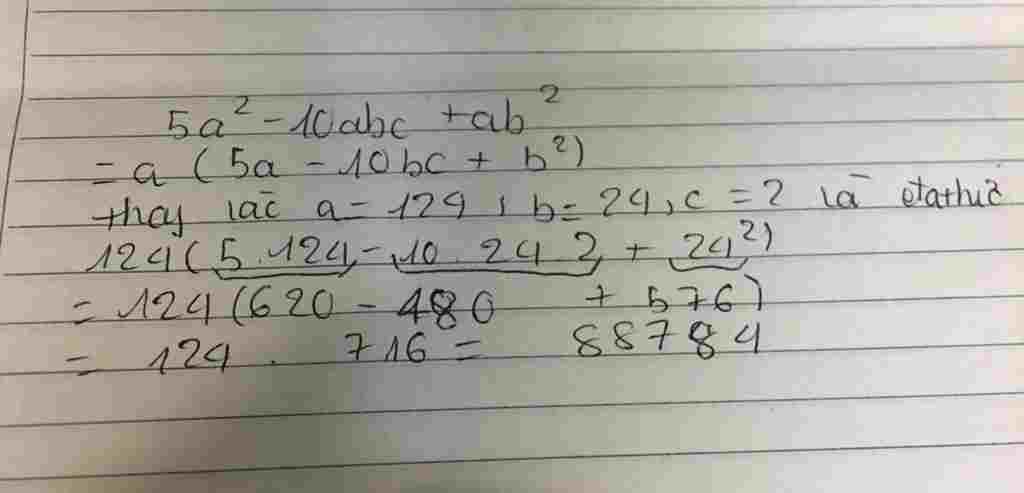 5a² - 10abc + ab²
= a (5a - 10bc + b²)
thay a = 124, b = 24, c = 2
124(5.124 - 10.24.2 + 24²)
= 124(620 - 480 + 576)
= 124 . 716 = 88784